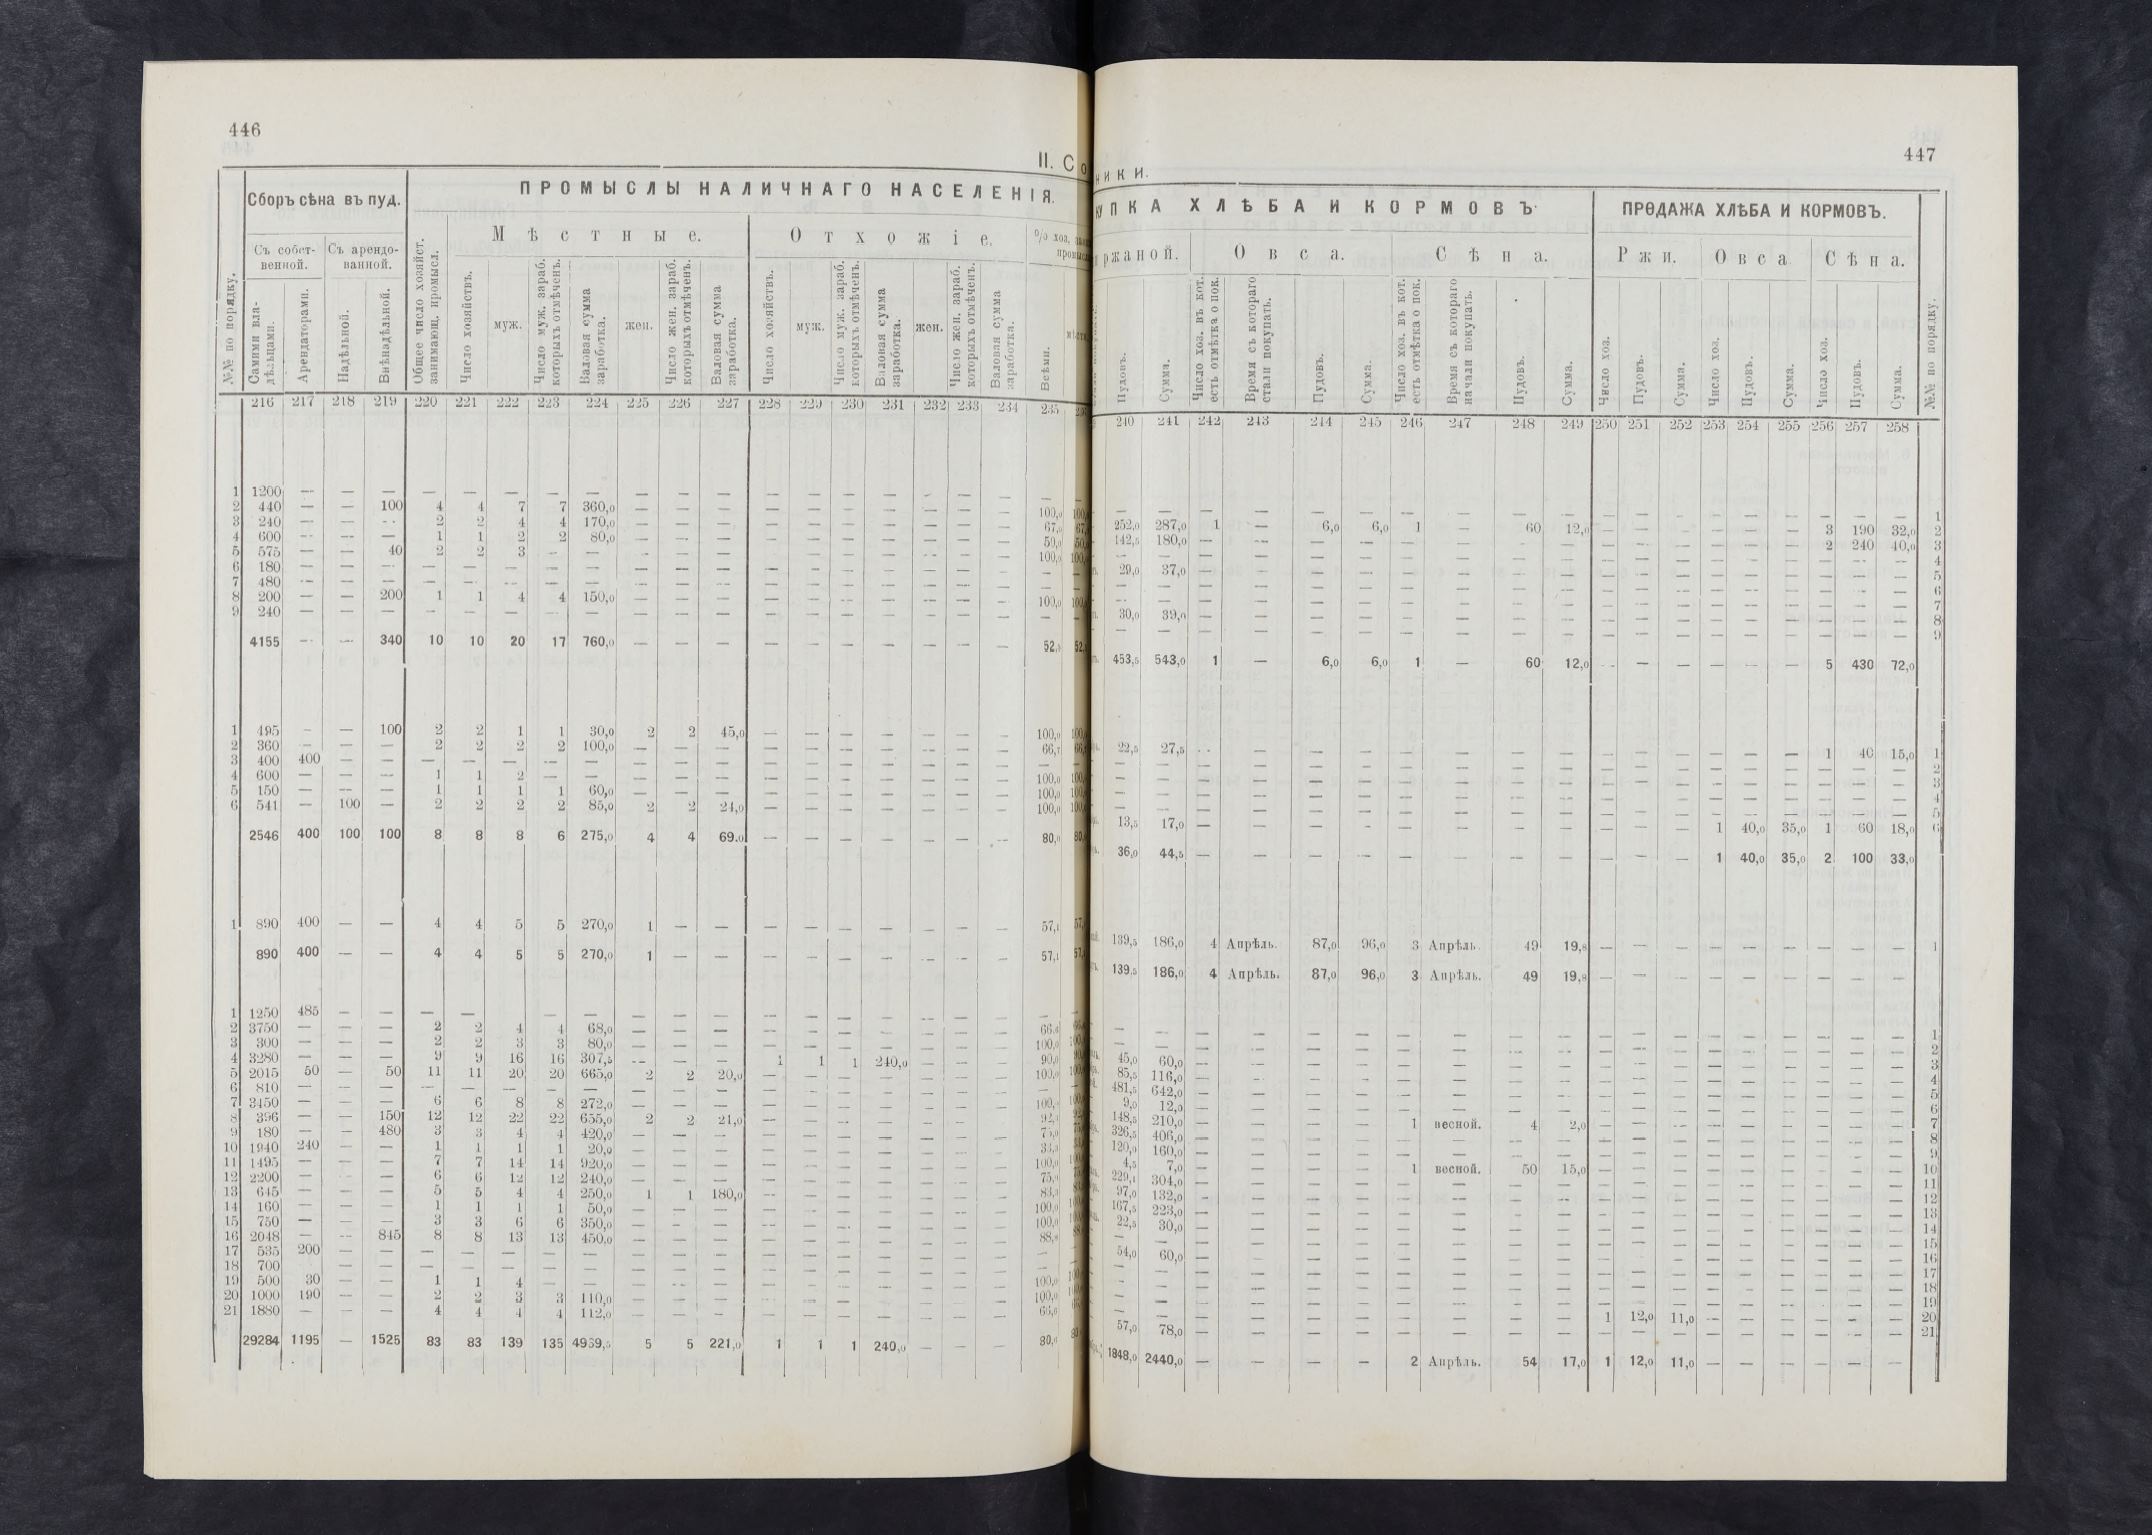 446
II. Со
Сборъ сѣна въ пуд.
ПРОМЫСЛЫ НАЛИЧНАГО НАСЕЛЕНІЯ.
Съ собственной. Съ арендованной. Мѣстные. Отхожіе.
№№ по порядку. Самими владѣльцами. Арендаторами. Надѣльной. Внѣнадѣльной. Общее число хозяйст. занимающ. промысл. Число хозяйствъ. муж. Число муж. зараб. которыхъ отмѣченъ. Валовая сумма заработка. жен. Число жен. зараб. которыхъ отмѣченъ. Валовая сумма заработка. Число хозяйствъ. муж. Число муж. зараб. которыхъ отмѣченъ. Валовая сумма заработка. жен. Число жен. зараб. которыхъ отмѣченъ. Валовая сумма заработка. Всѣми.
216 217 218 219 220 221 222 223 224 225 226 227 228 229 230 231 232 233 234 235
1 1200 — — — — — — — — — — — — — — — — — — —
2 440 — — 100 4 4 7 7 360,0 — — — — — — — — — — 100,0
3 240 — — — 2 2 4 4 170,0 — — — — — — — — — — 67,0
4 600 — — — 1 1 2 2 80,0 — — — — — — — — — — 50,0
5 575 — — 40 2 2 3 — — — — — — — — — — — — 100,0
6 180 — — — — — — — — — — — — — — — — — — —
7 480 — — — — — — — — — — — — — — — — — — —
8 200 — — 200 1 1 4 4 150,0 — — — — — — — — — — 100,0
9 240 — — — — — — — — — — — — — — — — — — —
4155 — — 340 10 10 20 17 760,0 — — — — — — — — — — 52,
1 495 — — 100 2 2 1 1 30,0 2 2 45,0 — — — — — — — 100,0
2 360 — — — 2 2 2 2 100,0 — — — — — — — — — — 66,7
3 400 400 — — — — — — — — — — — — — — — — — —
4 600 — — — 1 1 2 — — — — — — — — — — — — 100,0
5 150 — — — 1 1 1 1 60,0 — — — — — — — — — — 100,0
6 541 — 100 — 2 2 2 2 85,0 2 2 24,0 — — — — — — — 100,0
2546 400 100 100 8 8 8 6 275,0 4 4 69,0 — — — — — — — 80,0
1 890 400 — — 4 4 5 5 270,0 1 — — — — — — — — — 57,1
890 400 — — 4 4 5 5 270,0 1 — — — — — — — — — 57,1
1 1250 485 — — — — — — — — — — — — — — — — — —
2 3750 — — — 2 2 4 4 68,0 — — — — — — — — — — 66,6
3 300 — — — 2 2 3 3 80,0 — — — — — — — — — — 100,0
4 3280 — — — 9 9 16 16 307,5 — — — 1 1 1 240,0 — — — 90,0
5 2015 50 — 50 11 11 20 20 665,0 2 2 20,0 — — — — — — — 100,0
6 810 — — — — — — — — — — — — — — — — — — —
7 3450 — — — 6 6 8 8 272,0 — — — — — — — — — — 100,
8 396 — — 150 12 12 22 22 655,0 2 2 21,0 — — — — — — — 92,
9 180 — — 480 3 3 4 4 420,0 — — — — — — — — — — 75,0
10 1940 240 — — 1 1 1 1 20,0 — — — — — — — — — — 33,3
11 1495 — — — 7 7 14 14 920,0 — — — — — — — — — — 100,0
12 2200 — — — 6 6 12 12 240,0 — — — — — — — — — — 75,0
13 645 — — — 5 5 4 4 250,0 1 1 180,0 — — — — — — — 83,3
14 160 — — — 1 1 1 1 50,0 — — — — — — — — — — 100,0
15 750 — — — 3 3 6 6 350,0 — — — — — — — — — — 100,0
16 2048 — — 845 8 8 13 13 450,0 — — — — — — — — — — 88,
17 535 200 — — — — — — — — — — — — — — — — — —
18 700 — — — — — — — — — — — — — — — — — — —
19 500 30 — — 1 1 4 — — — — — — — — — — — — 100,0
20 1000 190 — — 2 2 3 3 110,0 — — — — — — — — — — 100,0
21 1880 — — — 4 4 4 4 112,0 — — — — — — — — — — 66,6
29284 1195 — 1525 83 83 139 135 4969,5 5 5 221,0 1 1 1 240,0 — — — 80,
447
ники.
УПКА ХЛѢБА И КОРМОВЪ
ПРОДАЖА ХЛѢБА И КОРМОВЪ.
ржаной. Овса. Сѣна. Ржи. Овса Сѣна.
Пудовъ. Сумма. Число хоз. въ кот. есть отмѣтка о пок. Время съ котораго стали покупать. Пудовъ. Сумма. Число хоз. въ кот. есть отмѣтка о пок. Время съ котораго начали покупать. Пудовъ. Сумма. Число хоз. Пудовъ. Сумма. Число хоз. Пудовъ. Сумма. Число хоз. Пудовъ. Сумма. №№ по порядку.
240 241 242 243 244 245 246 247 248 249 250 251 252 253 254 255 256 257 258
— — — — — — — — — — — — — — — — — — — 1
252,0 287,0 1 — 6,0 6,0 1 — 60 12,0 — — — — — — 3 190 32,0 2
142,5 180,0 — — — — — — — — — — — — — — 2 240 40,0 3
— — — — — — — — — — — — — — — — — — — 4
29,0 37,0 — — — — — — — — — — — — — — — — — 5
— — — — — — — — — — — — — — — — — — — 6
— — — — — — — — — — — — — — — — — — — 7
30,0 39,0 — — — — — — — — — — — — — — — — — 8
— — — — — — — — — — — — — — — — — — — 9
453,5 543,0 1 — 6,0 6,0 1 — 60 12,0 — — — — — — 5 430 72,0
22,5 27,5 — — — — — — — — — — — — — — 1 40 15,0 1
— — — — — — — — — — — — — — — — — — — 2
— — — — — — — — — — — — — — — — — — — 3
— — — — — — — — — — — — — — — — — — — 4
— — — — — — — — — — — — — — — — — — — 5
13,5 17,0 — — — — — — — — — — — 1 40,0 35,0 1 60 18,0 6
36,0 44,5 — — — — — — — — — — — 1 40,0 35,0 2 100 33,0
139,5 186,0 4 Апрѣль. 87,0 96,0 3 Апрѣль. 49 19,8 — — — — — — — — — 1
139,5 186,0 4 Апрѣль. 87,0 96,0 3 Апрѣль. 49 19,8 — — — — — — — — —
— — — — — — — — — — — — — — — — — — — 1
45,0 60,0 — — — — — — — — — — — — — — — — — 2
85,5 116,0 — — — — — — — — — — — — — — — — — 3
481,5 642,0 — — — — — — — — — — — — — — — — — 4
9,0 12,0 — — — — — — — — — — — — — — — — — 5
148,5 210,0 — — — — — — — — — — — — — — — — — 6
326,5 406,0 — — — — 1 весной. 4 2,0 — — — — — — — — — 7
120,0 160,0 — — — — — — — — — — — — — — — — — 8
4,5 7,0 — — — — — — — — — — — — — — — — — 9
229,1 304,0 — — — — 1 весной. 50 15,0 — — — — — — — — — 10
97,0 132,0 — — — — — — — — — — — — — — — — — 11
167,5 223,0 — — — — — — — — — — — — — — — — — 12
22,5 30,0 — — — — — — — — — — — — — — — — — 13
— — — — — — — — — — — — — — — — — — — 14
54,0 60,0 — — — — — — — — — — — — — — — — — 15
— — — — — — — — — — — — — — — — — — — 16
— — — — — — — — — — — — — — — — — — — 17
— — — — — — — — — — — — — — — — — — — 18
— — — — — — — — — — — — — — — — — — — 19
— — — — — — — — — — 1 12,0 11,0 — — — — — — 20
57,0 78,0 — — — — — — — — — — — — — — — — — 21
1848,0 2440,0 — — — — 2 Апрѣль. 54 17,0 1 12,0 11,0 — — — — — —